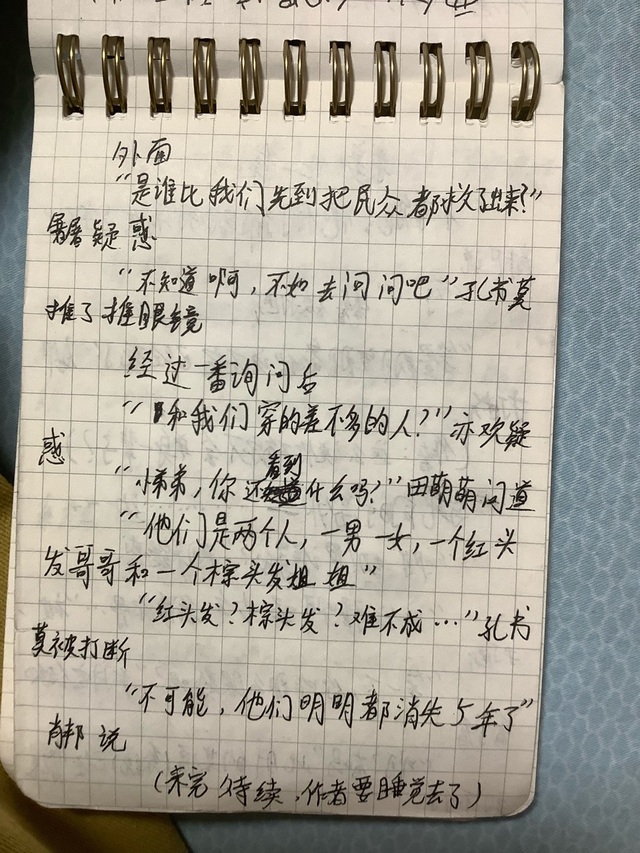 外面
“是谁比我们先到把民众都救了出来?”
屠屠疑惑
“不知道啊，不如去问问吧”孔书莫
推了推眼镜
经过一番询问后
“和我们穿的差不多的人?”亦欢疑
惑
“小弟弟，你还看到什么吗?”田萌萌问道
“他们是两个人，一男一女，一个红头
发哥哥和一个棕头发姐姐”
“红头发?棕头发?难不成…”孔书
莫被打断
“不可能，他们明明都消失5年了”
肖邦说
(未完待续，作者要睡觉去了)